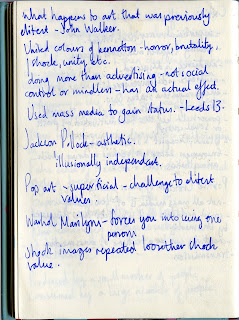 What happens to art that was previously
elitest - John Walker.
United colours of bennetton - horror, brutality,
shock, unity etc.
doing more than advertising - not social
control or mindless - has an actual effect.
Used mass media to gain status. - Leeds 13.
Jackson Pollock - asthetic.
illusionally independant.
Pop art - superficial - challenge to elitest
values.
Warhol Marilyns - forces you into being one
person
Shock images repeated loose their shock
value.